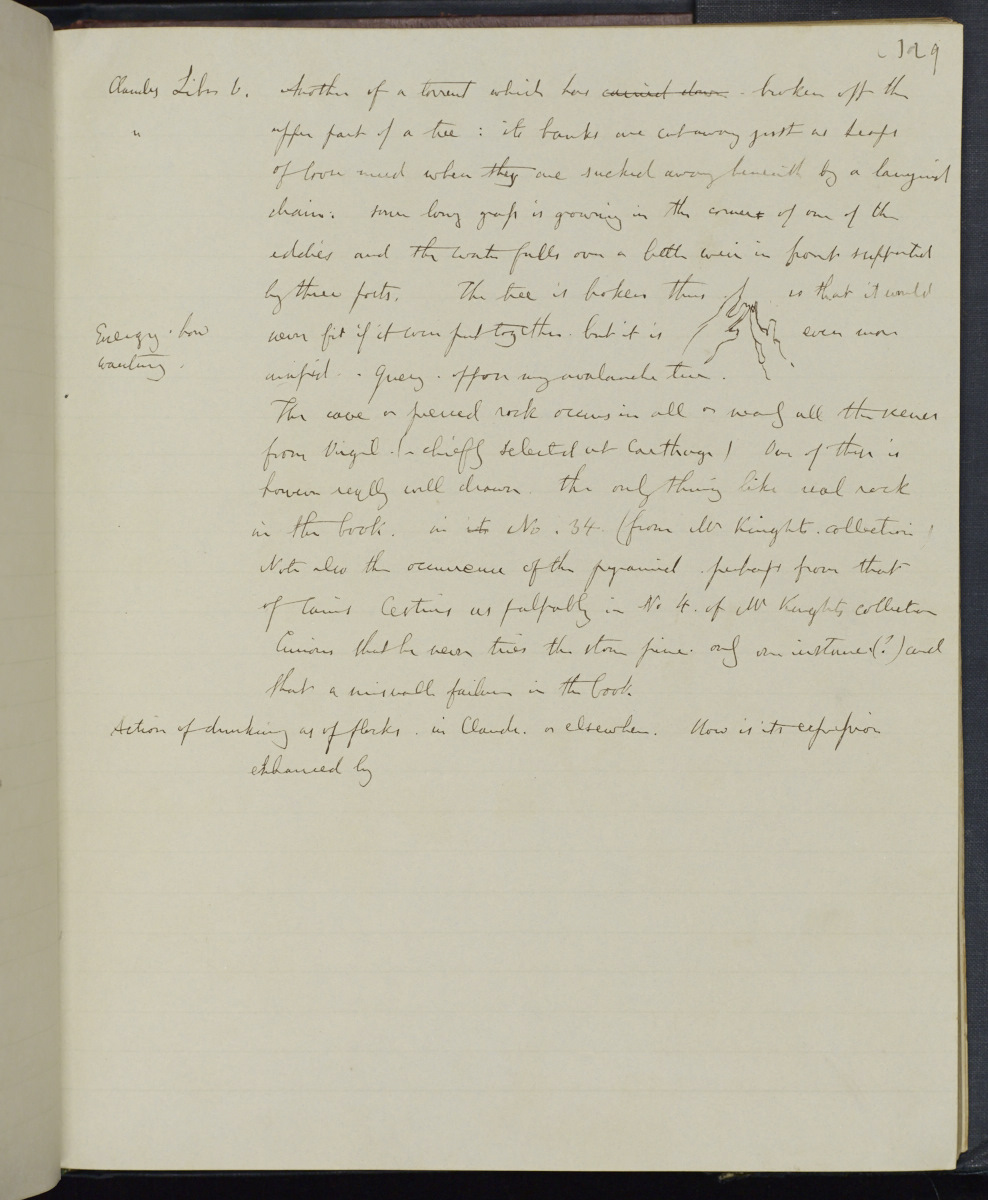 129
Claudes Liber V. Another of a torrent which has carried down broken off the
" upper part of a tree : its banks are cut away just as heaps
of loose mud when they are sucked away beneath by a languid
drain: some long grass is growing in the corner of one of the
eddies and the water falls over a little weir in front supported
by three posts. The tree is broken thus so that it would
Energy. how never fit if it were put together. but it is even more
wanting. . Query. oppose my avalanche tree.
The cave or pierced rock occurs in all or nearly all the scenes
from Virgil. (- chiefly selected at Carthage) One of these is
however really well drawn. the only thing like real rock
in the book. in its No. 34. (from Mr Knights. collection)
Note also the occurrence of the pyramid. perhaps from that
of Caius Cestius as palpably in No 4. of Mr Knights collection
Curious that he never tries the stone pine. only one instance (?) and
that a miserable failure in the book.
Action of drinking as of flocks. in Claude. or elsewhere. How is its expression
enhanced by